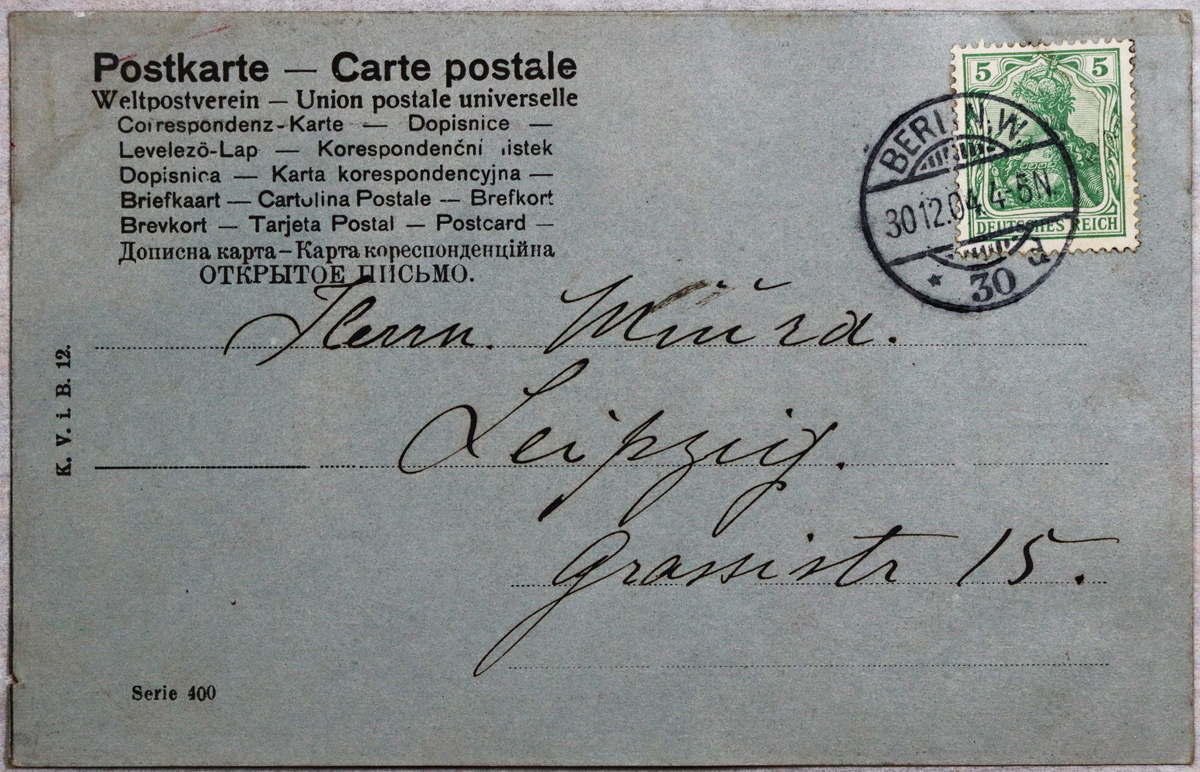 Postkarte — Carte postale
Weltpostverein — Union postale universelle
Correspondenz-Karte — Dopisnice —
Levelezö-Lap — Korespondenční listek
Dopisnica — Karta korespondencyjna —
Briefkaart — Cartolina Postale — Brefkort
Brevkort — Tarjeta Postal — Postcard —
Дописна карта — Карта кореспонденційна
ОТКРЫТОЕ ПИСЬМО.
5 5
DEUTSCHES REICH
BERLIN.W.
30.12.04.4-5N
* 30 d
Herrn.
Leipzig.
Grassistr 15.
K. V. i. B. 12.
Serie 400